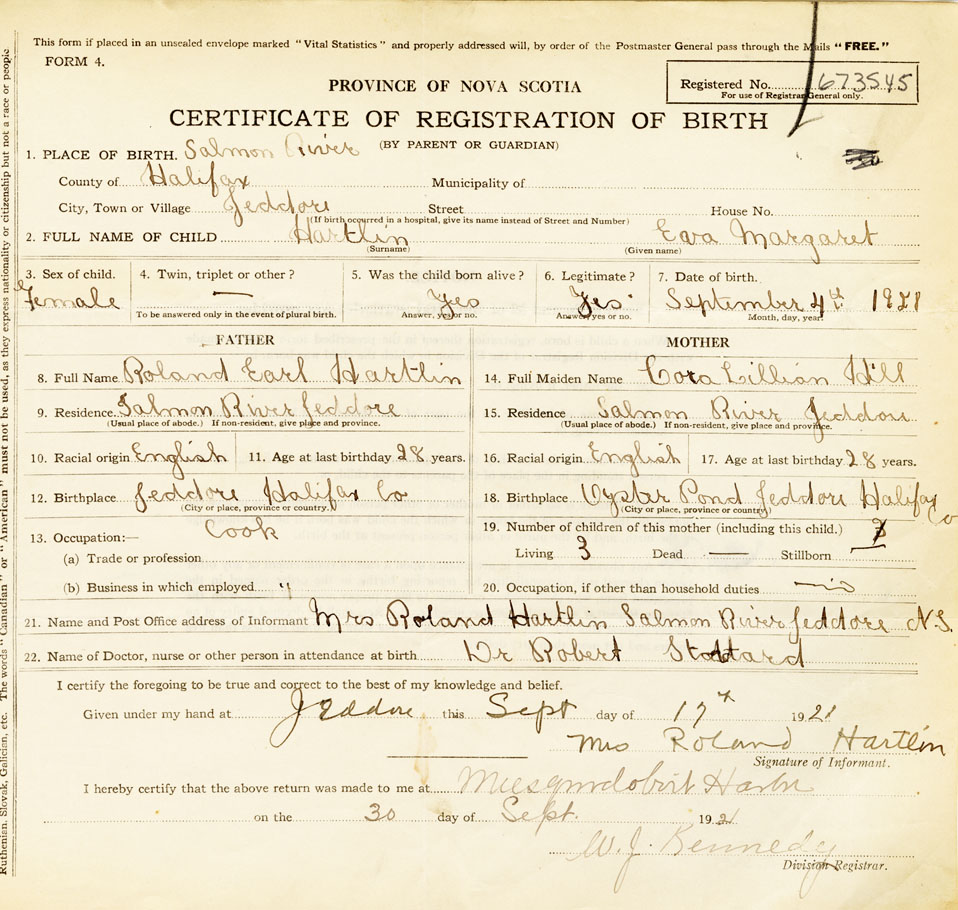 This form if placed in an unsealed envelope marked "Vital Statistics" and properly addressed will, by order of the Postmaster General pass through the Mails "FREE."
FORM 4.
PROVINCE OF NOVA SCOTIA
Registered No. 673545
For use of Registrar General only.
CERTIFICATE OF REGISTRATION OF BIRTH
(BY PARENT OR GUARDIAN)
1. PLACE OF BIRTH. Salmon River
County of Halifax Municipality of
City, Town or Village Jeddore Street House No.
(If birth occurred in a hospital, give its name instead of Street and Number)
2. FULL NAME OF CHILD Hartlin Eva Margaret
(Surname) (Given name)
3. Sex of child. 4. Twin, triplet or other? 5. Was the child born alive? 6. Legitimate? 7. Date of birth.
Female — Yes Yes. September 4th 1921
To be answered only in the event of plural birth. Answer, yes or no. Answer, yes or no. Month, day, year.
FATHER MOTHER
8. Full Name Roland Earl Hartlin 14. Full Maiden Name Cora Lillian Hill
9. Residence Salmon River Jeddore 15. Residence Salmon River Jeddore
(Usual place of abode.) If non-resident, give place and province. (Usual place of abode.) If non-resident, give place and province.
10. Racial origin English 11. Age at last birthday 28 years. 16. Racial origin English 17. Age at last birthday 28 years.
12. Birthplace Jeddore Halifax Co 18. Birthplace Oyster Pond Jeddore Halifax Co
(City or place, province or country.) (City or place, province or country)
13. Occupation:— Cook 19. Number of children of this mother (including this child.)
(a) Trade or profession Living 3 Dead — Stillborn —
(b) Business in which employed " 20. Occupation, if other than household duties
21. Name and Post Office address of Informant Mrs Roland Hartlin Salmon River Jeddore N.S.
22. Name of Doctor, nurse or other person in attendance at birth Dr Robert
I certify the foregoing to be true and correct to the best of my knowledge and belief.
Given under my hand at Jeddore this Sept day of 17 1921
Mrs Roland Hartlin
Signature of Informant.
I hereby certify that the above return was made to me at
on the 30 day of Sept. 1921
W. J. Kennedy
Division Registrar.
Ruthenian, Slovak, Galician, etc. The words "Canadian" or "American" must not be used, as they express nationality or citizenship but not a race or people.